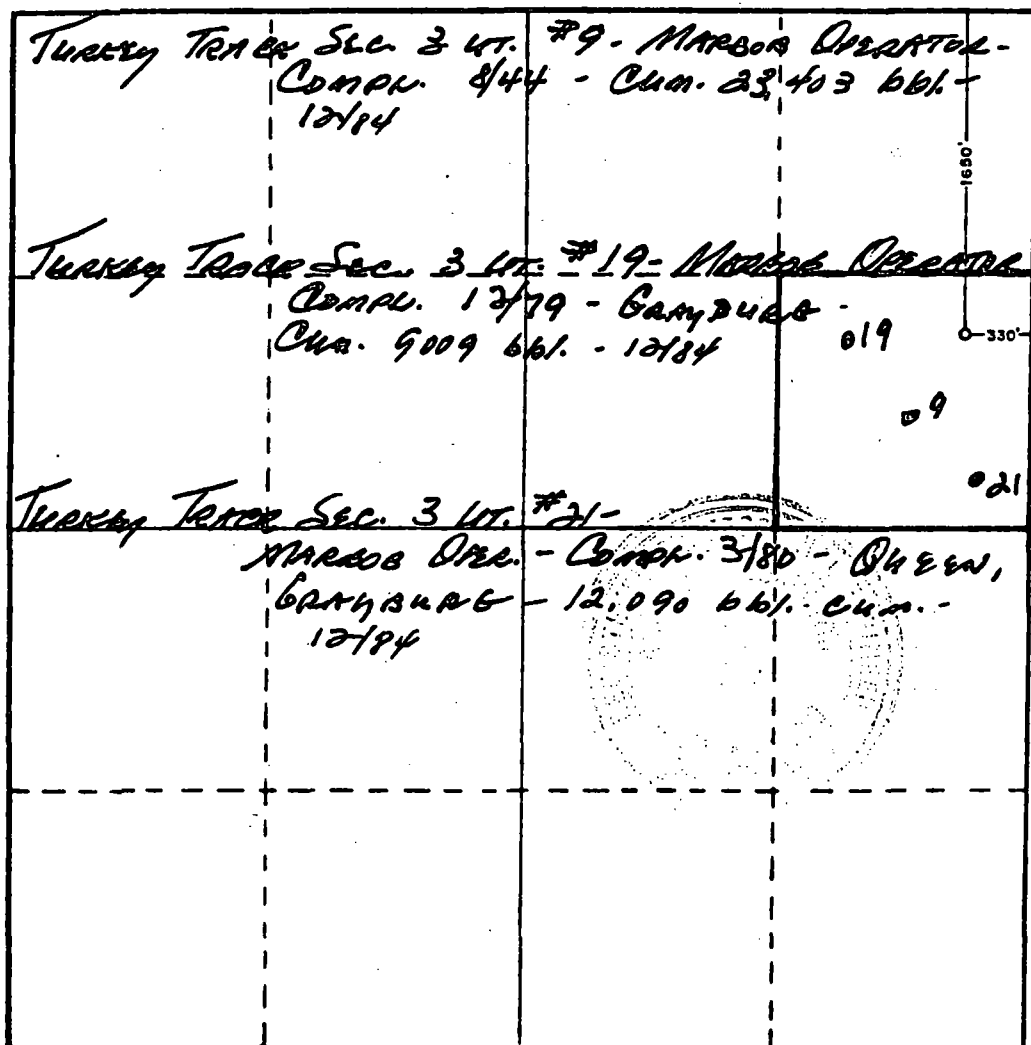 TURKEY TRACK SEC. 3 UT. #9 - MARBOB OPERATOR -
COMPL. 8/44 - CUM. 23,403 bbl. -
12/84
1650'
TURKEY TRACK SEC. 3 UT. #19 - MARBOB OPERATOR
COMPL. 12/79 - GRAYBURG -
CUM. 9009 bbl. - 12/84
19
330'
9
21
TURKEY TRACK SEC. 3 UT. #21 -
MARBOB OPER. - COMPL. 3/80 - QUEEN,
GRAYBURG - 12,090 bbl. CUM. -
12/84